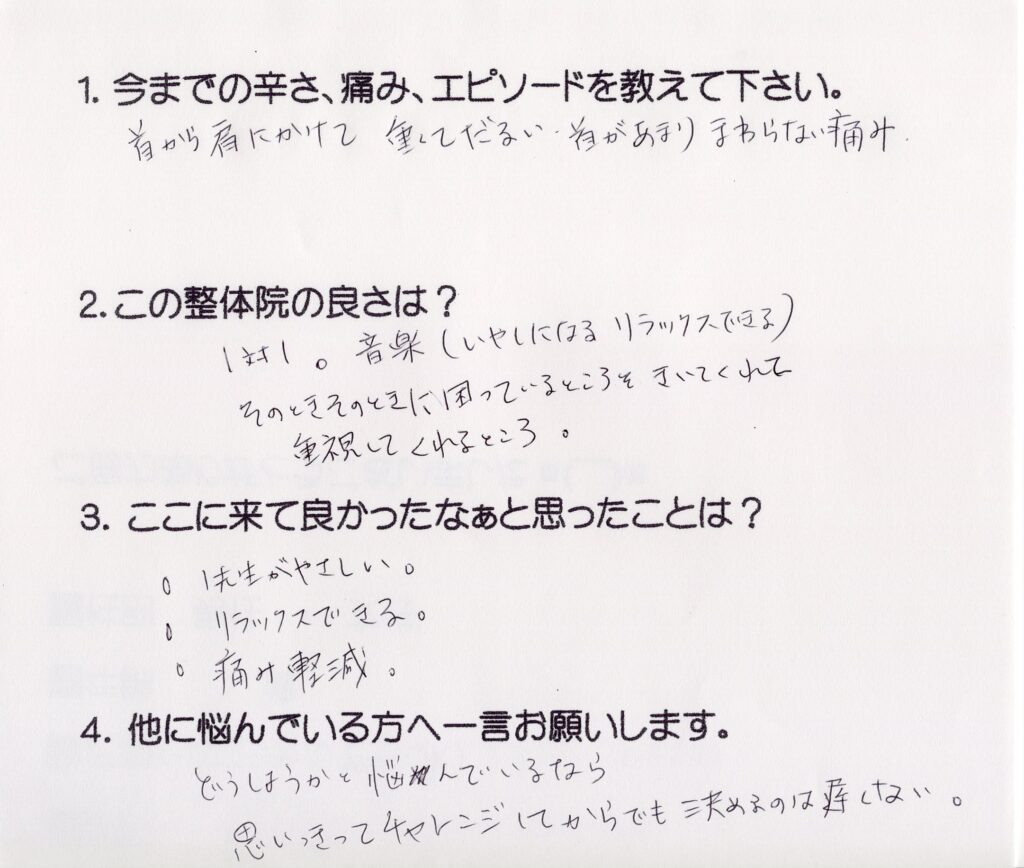 1. 今までの辛さ、痛み、エピソードを教えて下さい。
首から肩にかけて 重くてだるい・首があまりまわらない痛み.
2. この整体院の良さは？
1対1。音楽(いやしになる リラックスできる)
そのときそのときに困っているところを きいてくれて
重視してくれるところ。
3. ここに来て良かったなぁと思ったことは？
。先生がやさしい。
。リラックスできる。
。痛み軽減。
4. 他に悩んでいる方へ一言お願いします。
どうしようかと悩んでいるなら
思いきってチャレンジしてからでも決めるのは遅くない。